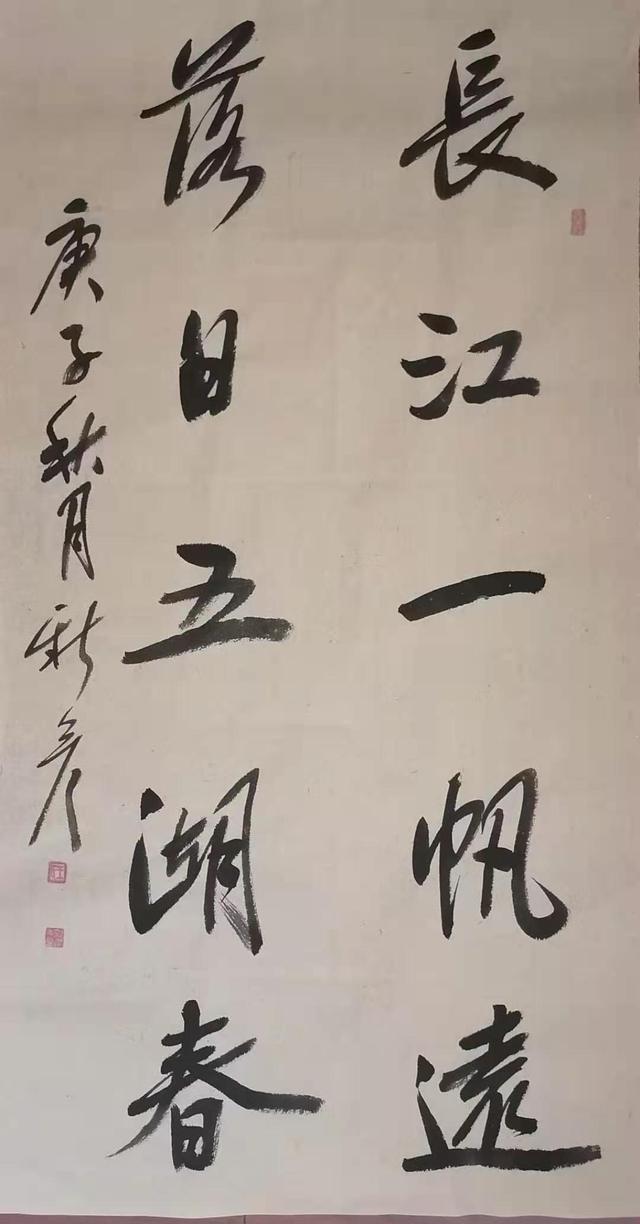 長江一帆遠
落日五湖春
庚子秋月新彦